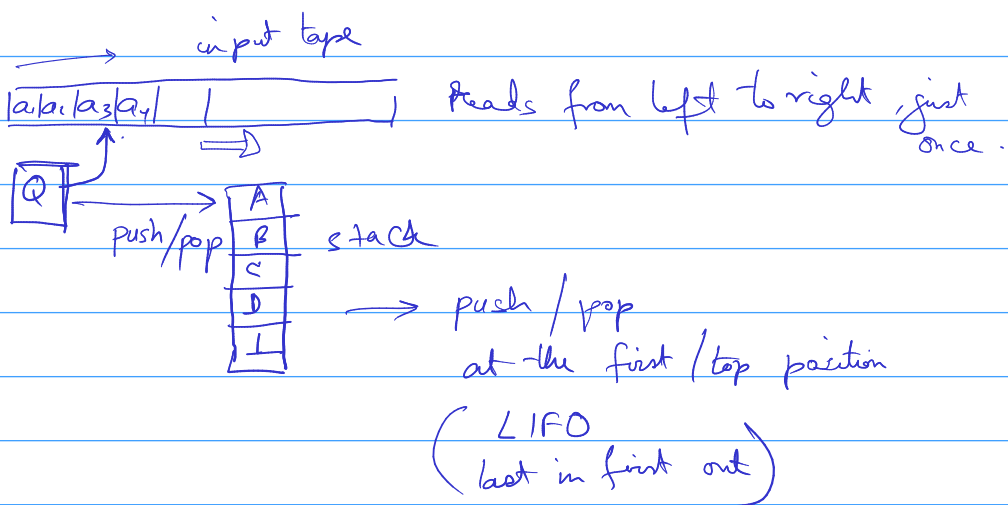 input tape
|a₁|a₂|a₃|a₄|
Reads from left to right, just
once.
Q
push/pop
A
B
C
D
⊥
stack
push/pop
at the first/top position
(LIFO
last in first out)